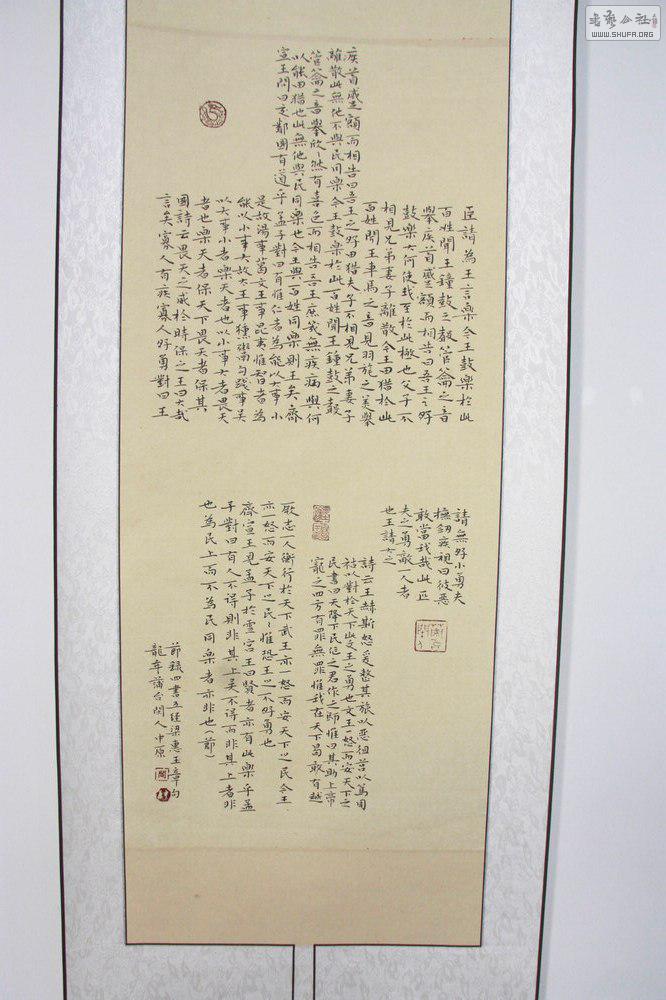 臣請為王言樂今王鼓樂於此
百姓聞王鐘鼓之聲管籥之音
舉疾首蹙額而相告曰吾王之好
鼓樂夫何使我至於此極也父子不
相見兄弟妻子離散今王田猎於此
百姓聞王車馬之音見羽旄之美舉
疾首蹙額而相告曰吾王之好田猎夫子不相見兄弟妻子
離散此無他不與民同樂今王鼓樂於此百姓聞王鐘鼓之聲
管籥之音舉欣々然有喜色而相告吾王庶幾無疾病與何
以能田猎也此無他與民同樂也今王與百姓同樂則王矣齊
宣王問曰交鄰國有道乎孟子對曰有惟仁者為能以大事小
是故湯事葛文王事昆夷惟智者為
能以小事大故大王事獯鬻句踐事吳
以大事小者樂天者也以小事大者畏天
者也樂天者保天下畏天者保其
國詩云畏天之威於時保之王曰大哉
言矣寡人有疾寡人好勇對曰王
請無好小勇夫
撫劍疾視曰彼惡
敢當我哉此匹
夫之勇敵一人者
也王請大之
詩云王赫斯怒爰整其旅以遏徂莒以篤周
祜以對於天下此文王之勇也文王一怒而安天下之
民書曰天降下民作之君作之師惟曰其助上帝
寵之四方有罪無罪惟我在天下曷敢有越
厥志一人衡行於天下武王亦一怒而安天下之民今王
亦一怒而安天下之民々惟恐王之不好勇也
齊宣王見孟子於雪宮王曰賢者亦有此樂乎孟
子對曰有人不得則非其上矣不得而非其上者非
也為民上而不為民同樂者亦非也(節)
節錄四書五經梁惠王章句
龍年蒲台閑人中原
WWW.SHUFA.ORG